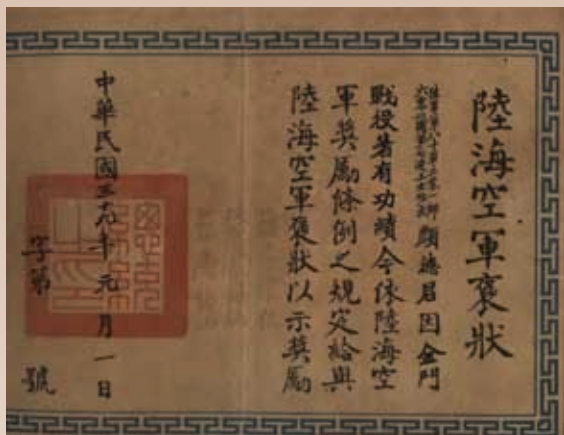 陸海空軍褒狀
顧德君因金門
戰役著有功績今依陸海空
軍奬勵條例之規定給與
陸海空軍褒狀以示奬勵
中華民國三十九年元月一日
字第 號